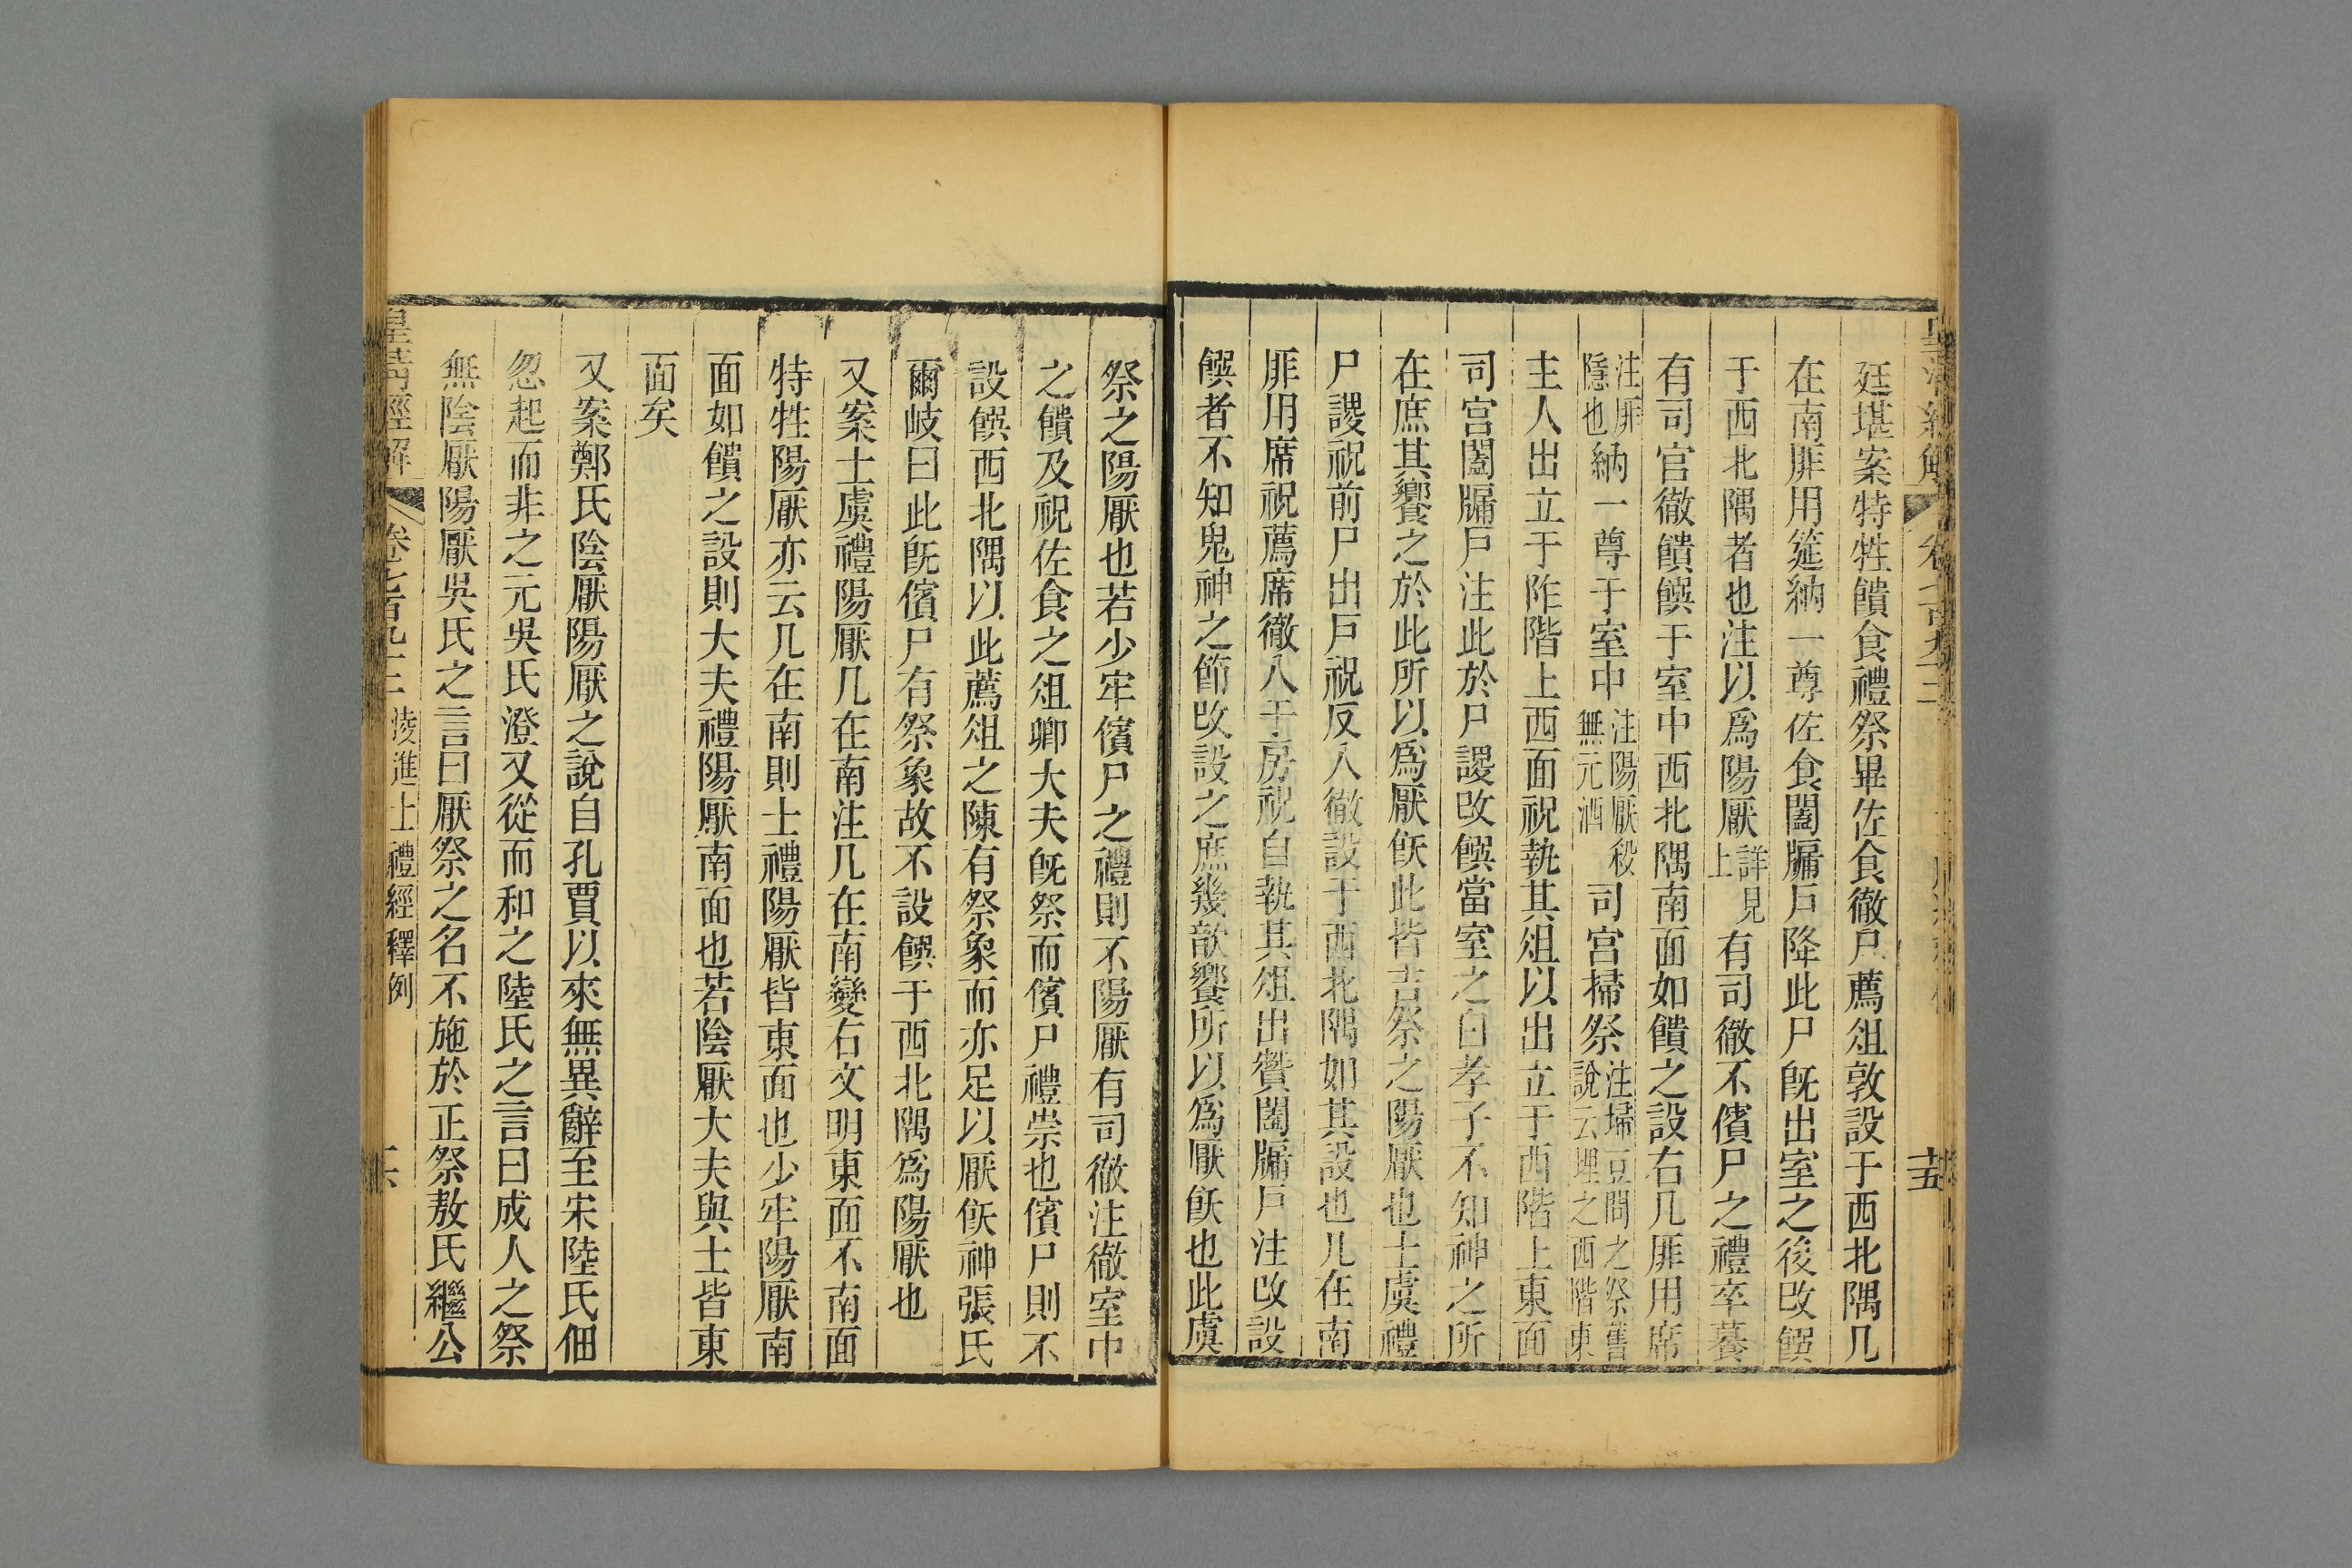 廷堪案特牲饋食禮祭畢佐食徹尸薦俎敦設于西北隅几
在南厞用筵納一尊佐食闔牖戶降此尸旣出室之後改饌
于西北隅者也注以爲陽厭詳見上有司徹不儐尸之禮卒䔳
有司官徹饋饌于室中西北隅南面如饋之設右几厞用席
注厞隱也納一尊于室中注陽厭殺無元酒司宮掃祭注埽豆間之祭舊說云埋之西階東
主人出立于阼階上西面祝執其俎以出立于西階上東面
司宮闔牖戶注此於尸謖改饌當室之白孝子不知神之所
在庶其饗之於此所以爲厭飫此皆吉祭之陽厭也士虞禮
尸謖祝前尸出戶祝反入徹設于西北隅如其設也几在南
厞用席祝薦席徹入于房祝自執其俎出贊闔牖戶注改設
饌者不知鬼神之節改設之庶幾歆饗所以爲厭飫也此虞
祭之陽厭也若少牢儐尸之禮則不陽厭有司徹注徹室中
之饋及祝佐食之俎卿大夫旣祭而儐尸禮崇也儐尸則不
設饌西北隅以此薦俎之陳有祭象而亦足以厭飫神張氏
爾岐曰此旣儐尸有祭象故不設饌于西北隅爲陽厭也
又案士虞禮陽厭几在南注几在南變右文明東面不南面
特牲陽厭亦云几在南則士禮陽厭皆東面也少牢陽厭南
面如饋之設則大夫禮陽厭南面也若陰厭大夫與士皆東
面矣
又案鄭氏陰厭陽厭之說自孔賈以來無異辭至宋陸氏佃
忽起而非之元吳氏澄又從而和之陸氏之言曰成人之祭
無陰厭陽厭吳氏之言曰厭祭之名不施於正祭敖氏繼公
皇淸經解 卷七百九十二 凌進士禮經釋例